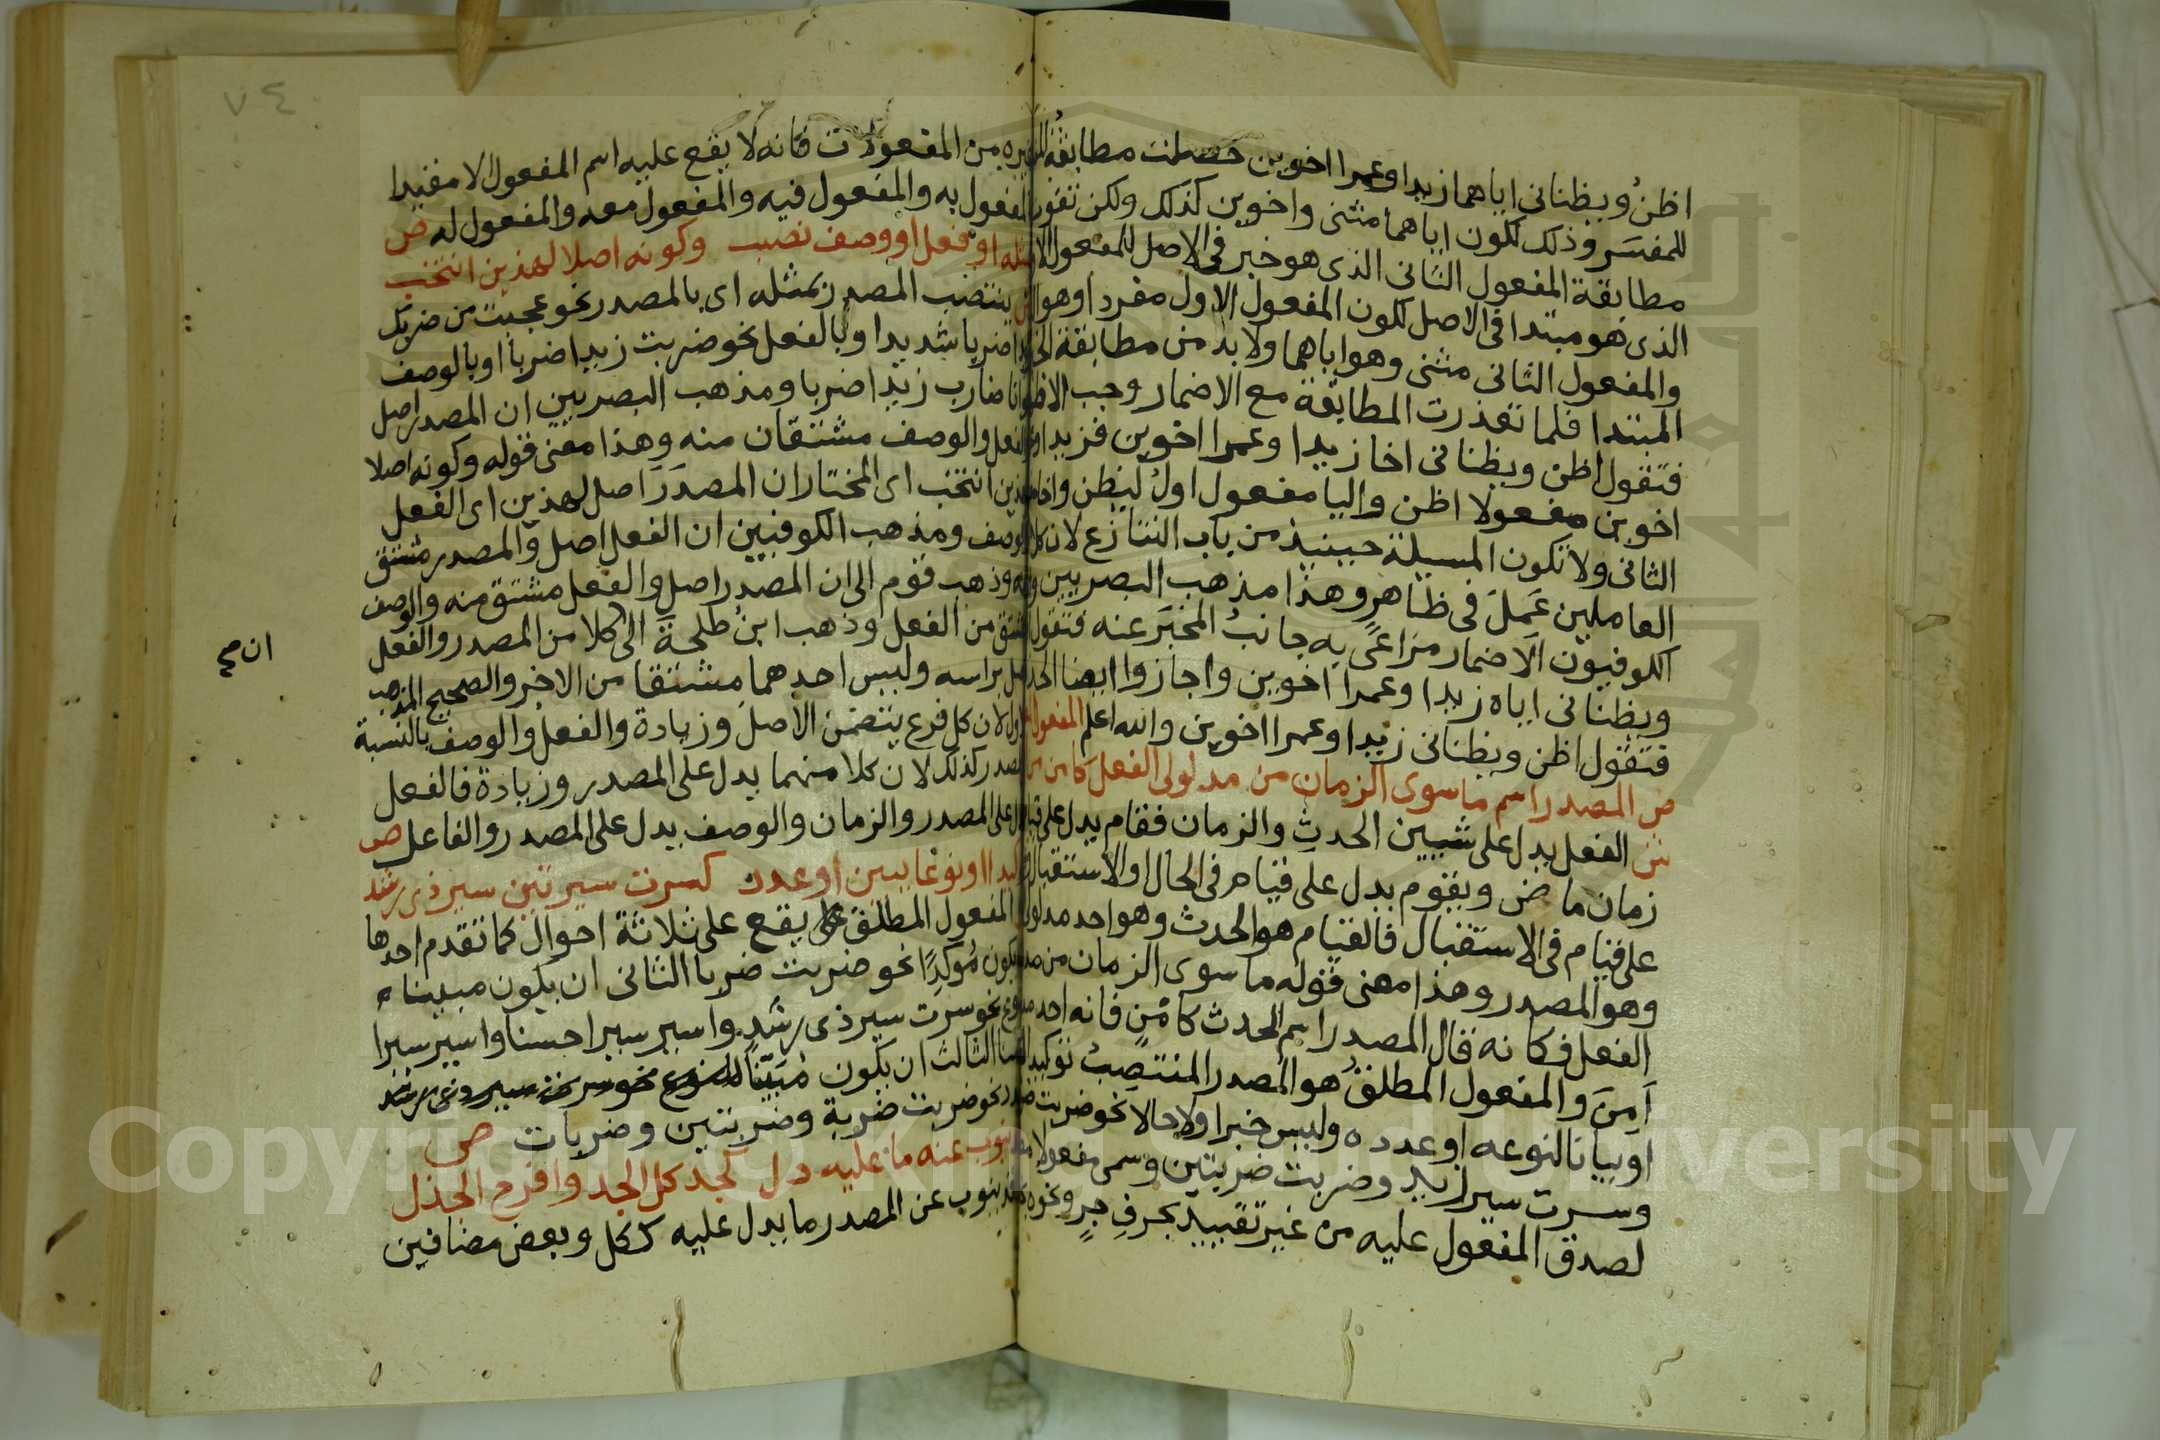 اظن ويظناني اياهما زيدا وعمرا اخوين حصلت مطابقة
للمفسر وذلك لكون اياهما مثنى واخوين كذلك ولكن تفوت
مطابقة المفعول الثاني الذي هو خبر في الاصل للمفعول الاول
الذي هو مبتدا في الاصل لكون المفعول الاول مفردا وهو اليا
والمفعول الثاني مثنى وهو اياهما ولا بد من مطابقة الخبر
المبتدا فلما تعذرت المطابقة مع الاضمار وجب الاظهار
فتقول اظن ويظناني اخا زيدا وعمرا اخوين فزيدا
اخوين مفعولا اظن واليا مفعول اول ليظن واخا
الثاني ولا تكون المسيلة حينيذ من باب التنازع لان كل
العاملين عمل في ظاهر وهذا مذهب البصريين
الكوفيون الاضمار مراعى به جانب المخبر عنه فتقول
ويظناني اياه زيدا وعمرا اخوين واجازوا ايضا الحذف
فتقول اظن ويظناني زيدا وعمرا اخوين والله اعلم المفعول
ص المصدر اسم ما سوى الزمان من مدلولي الفعل كامن من
ش الفعل يدل على شيين الحدث والزمان فقام يدل على قيام
زمان ماض ويقوم يدل على قيام في الحال او الاستقبال
على قيام في الاستقبال فالقيام هو الحدث وهو احد مدلولي
وهو المصدر وهذا معنى قوله ما سوى الزمان من
الفعل فكانه قال المصدر اسم الحدث كامن فانه احد
امن والمفعول المطلق هو المصدر المنتصب توكيدا
او بيانا لنوعه او عدده وليس خبرا ولا حالا نحو ضربت
وسرت سير زيد وضربت ضربتين وسمى مفعولا
لصدق المفعول عليه من غير تقييد بحرف جر ونحوه
٧٤
غيره من المفعولات فانه لا يقع عليه اسم المفعول الا مقيدا
كالمفعول به والمفعول فيه والمفعول معه والمفعول له ص
بمثله او فعل او وصف نصب وكونه اصلا لهذين انتخب
ش ينتصب المصدر بمثله اي بالمصدر نحو عجبت من ضربك
زيدا ضربا شديدا وبالفعل نحو ضربت زيدا ضربا او بالوصف
انا ضارب زيدا ضربا ومذهب البصريين ان المصدر اصل
والفعل والوصف مشتقان منه وهذا معنى قوله وكونه اصلا
لهذين انتخب اي المختار ان المصدر اصل لهذين اي الفعل
والوصف ومذهب الكوفيين ان الفعل اصل والمصدر مشتق
منه وذهب قوم الى ان المصدر اصل والفعل مشتق منه والوصف
مشتق من الفعل وذهب ابن طلحة الى كلا من المصدر والفعل
ان صح
اصل براسه وليس احدهما مشتقا من الاخر والصحيح المذهب
الاول لان كل فرع يتضمن الاصل وزيادة والفعل والوصف بالنسبة
المصدر كذلك لان كلا منهما يدل على المصدر وزيادة فالفعل
يدل على المصدر والزمان والوصف يدل على المصدر والفاعل ص
توكيدا او نوعا يبين او عدد كسرت سيرتين سير ذي رشد
المفعول المطلق يقع على ثلاثة احوال كما تقدم احدها
يكون مؤكدا نحو ضربت ضربا الثاني ان يكون مبينا
نحو سرت سير ذي رشد واسير سيرا حسنا واسير سيرا
الثالث ان يكون مبينا للنوع نحو سرت سير ذي رشد
نحو ضربت ضربة وضربتين وضربات ص
ينوب عنه ما عليه دل كجد كل الجد وافرح الجذل
ينوب عن المصدر ما يدل عليه ككل وبعض مضافين